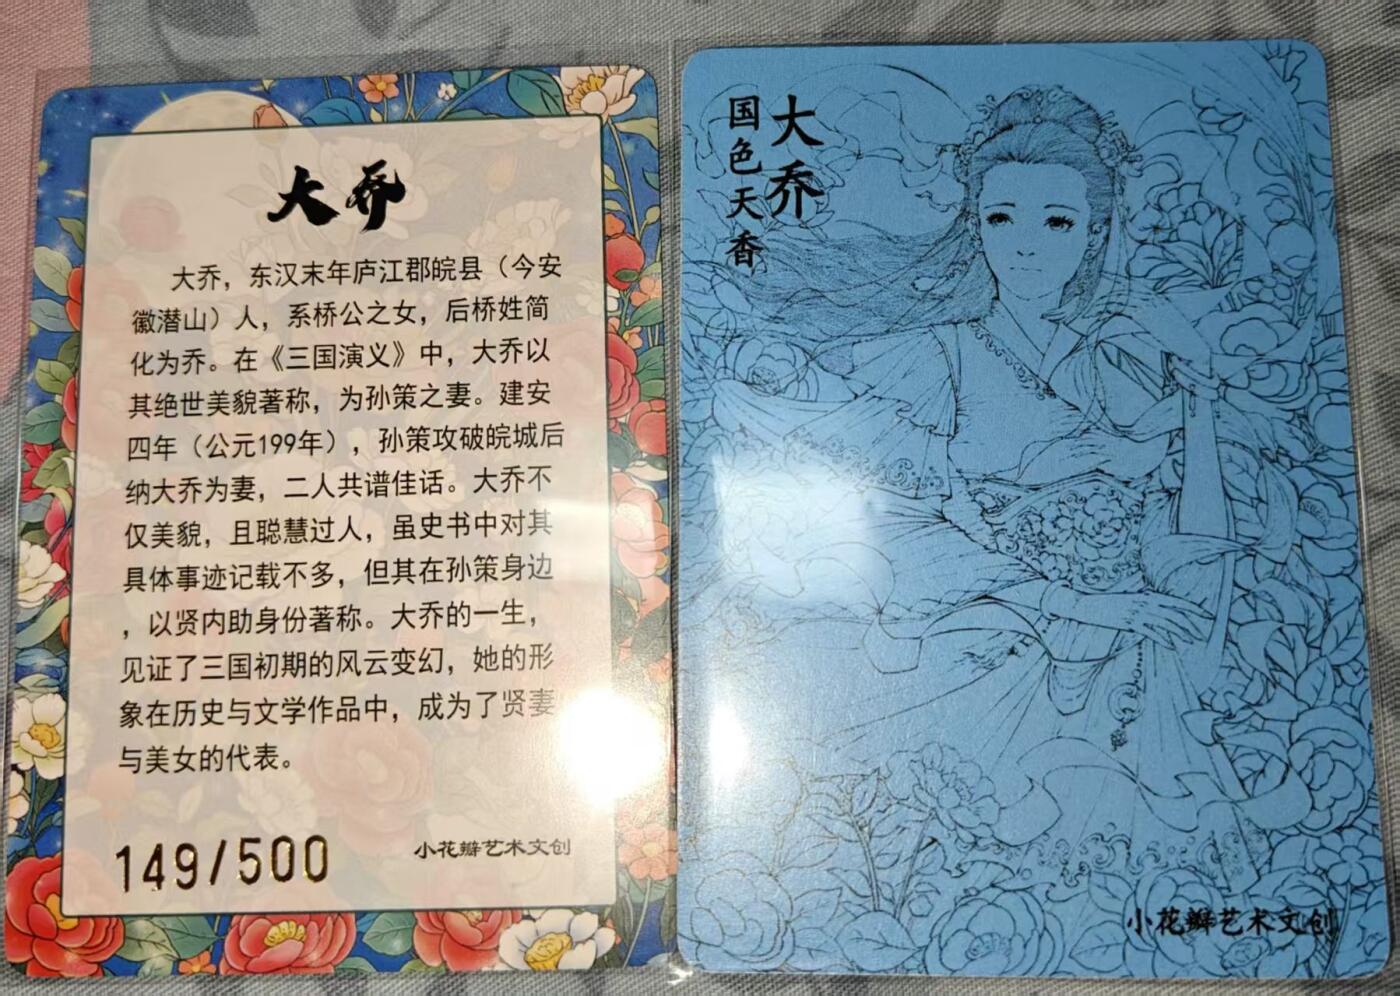 大乔
大乔，东汉末年庐江郡皖县（今安
徽潜山）人，系桥公之女，后桥姓简
化为乔。在《三国演义》中，大乔以
其绝世美貌著称，为孙策之妻。建安
四年（公元199年），孙策攻破皖城后
纳大乔为妻，二人共谱佳话。大乔不
仅美貌，且聪慧过人，虽史书中对其
具体事迹记载不多，但其在孙策身边
，以贤内助身份著称。大乔的一生，
见证了三国初期的风云变幻，她的形
象在历史与文学作品中，成为了贤妻
与美女的代表。
149/500
小花瓣艺术文创
大乔
国色天香
小花瓣艺术文创